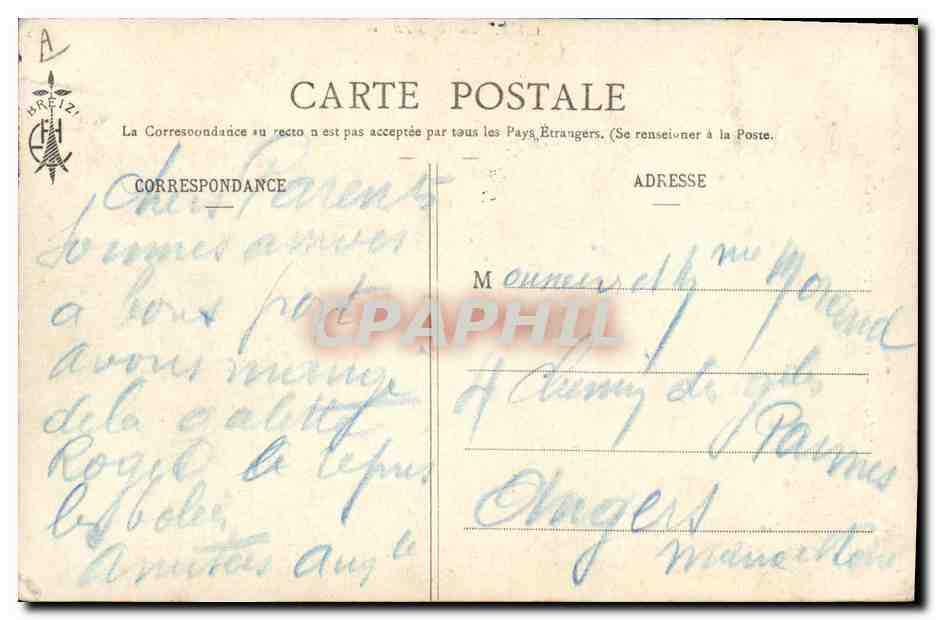 A
BREIZ
CARTE POSTALE
La Correspondance au recto n'est pas acceptée par tous les Pays Étrangers. (Se renseigner à la Poste.
CORRESPONDANCE
Chers Parents
sommes arrives
a bons port
avons mangé
de la galette
Roger le
les
Amities
ADRESSE
Monsieur et Mme Morand
4 Chemin des
Angers
Maine et Loire
CPAPHIL